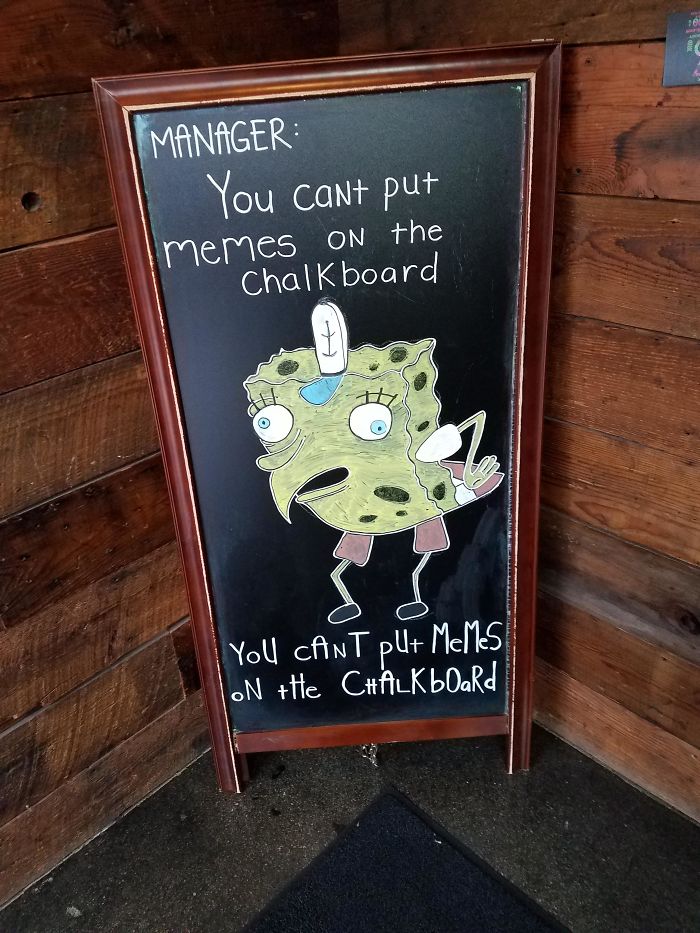 MANAGER:
You cant put
memes on the
chalkboard
YoU cANT pUt MeMeS
oN tHe CHALKbOaRd